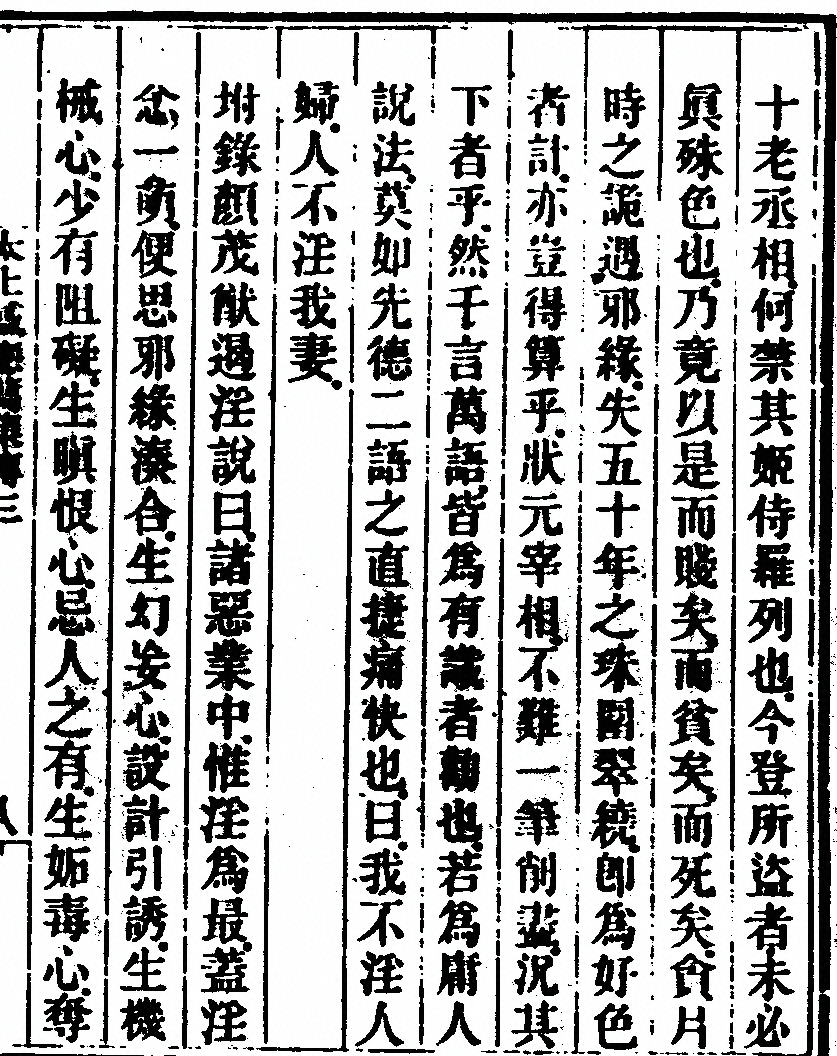 十老丞相何禁其姬侍羅列也今登所盜者未必
眞殊色也乃竟以是而賤矣而貧矣而死矣貪片
時之詭遇邪緣失五十年之珠圍翠繞卽爲好色
者計亦豈得算乎狀元宰相不難一筆削盡況其
下者乎然千言萬語皆爲有識者勸也若爲庸人
說法莫如先德二語之直捷痛快也曰我不淫人
婦人不淫我妻
坿錄顏茂猷遏淫說曰諸惡業中惟淫爲最蓋淫
念一萌便思邪緣湊合生幻妄心設計引誘生機
械心少有阻礙生瞋恨心忌人之有生妬毒心奪
太上感應篇集傳三
八